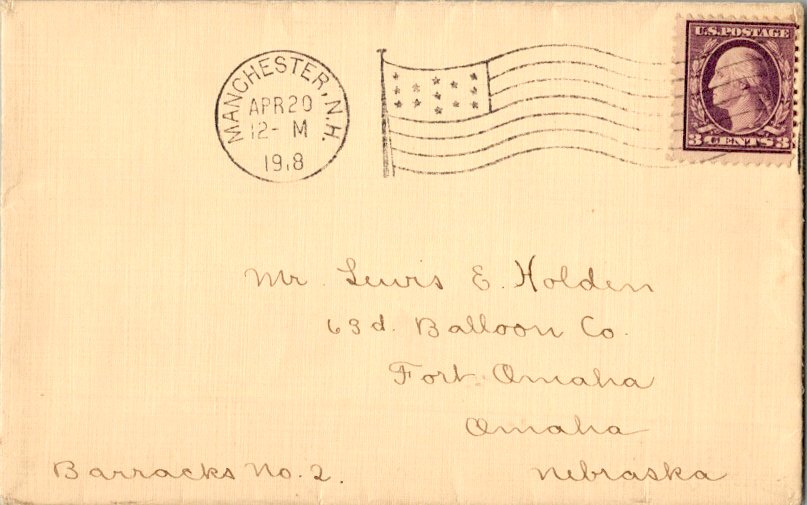 MANCHESTER, N.H.
APR 20
12- M
1918
U.S. POSTAGE
3 CENTS 3
Mr. Lewis E. Holden
63d. Balloon Co.
Fort Omaha
Omaha
Barracks No. 2. Nebraska